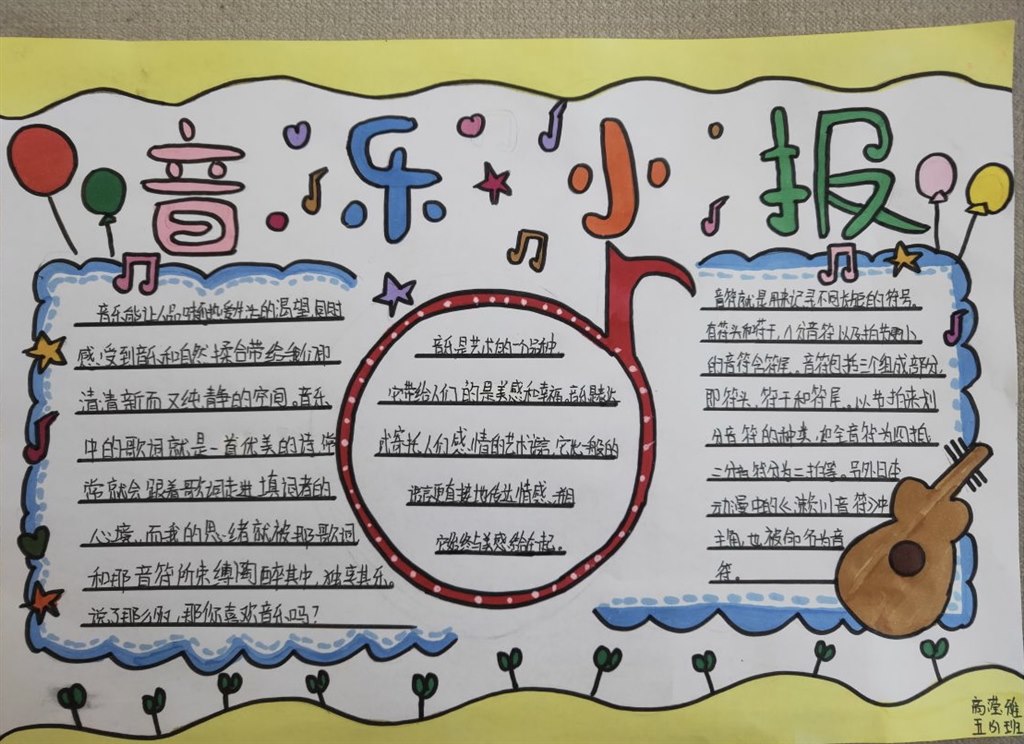 音乐小报
音乐能让人品味热爱生活的渴望同时
感受到音乐和自然揉合带给我们那
清清新而又纯静的空间。音乐
中的歌词就是一首优美的诗,常
常就会跟着歌词走进填词者的
心境,而我的思绪就被那歌词
和那音符所束缚陶醉其中,独享其乐。
说了那么多,那你喜欢音乐吗?
音乐是艺术的一个
它带给人们的是美感和幸福,音乐是
人们感情的艺术语言,它比一般的
语言更直接地传达情感
它始终与美感
音符就是用来记录不同长短的符号。
有符头和符干,八分音符以及拍节更小
的音符会符尾。音符包括三个组成部分,
即符头、符干和符尾。以节拍来划
分音符的种类,把全音符为四拍,
二分音符分为二拍等。另外日本
动漫中的《 音符》
主角也被 为音
符。
高滢雅
五 班